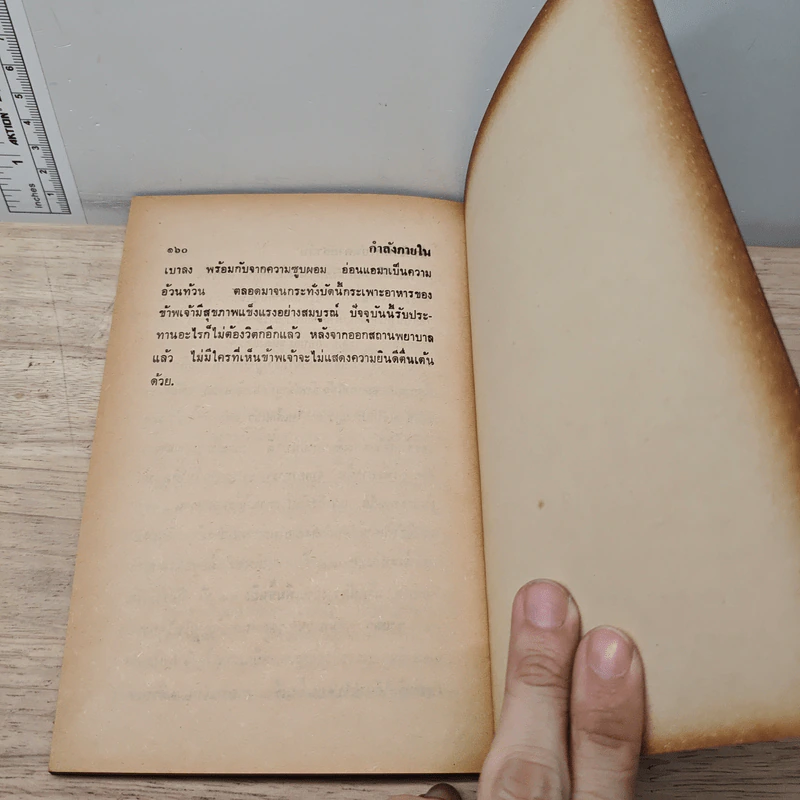 ๑๖๐ กำลังภายใน
เบาลง พร้อมกับจากความซูบผอม อ่อนแอมาเป็นความ
อ้วนท้วน ตลอดมาจนกระทั่งบัดนี้กระเพาะอาหารของ
ข้าพเจ้ามีสุขภาพแข็งแรงอย่างสมบูรณ์ ปัจจุบันนี้รับประ-
ทานอะไรก็ไม่ต้องวิตกอีกแล้ว หลังจากออกสถานพยาบาล
แล้ว ไม่มีใครที่เห็นข้าพเจ้าจะไม่แสดงความยินดีตื่นเต้น
ด้วย.
AKTION
inches
1
2
3
4
5
6
1